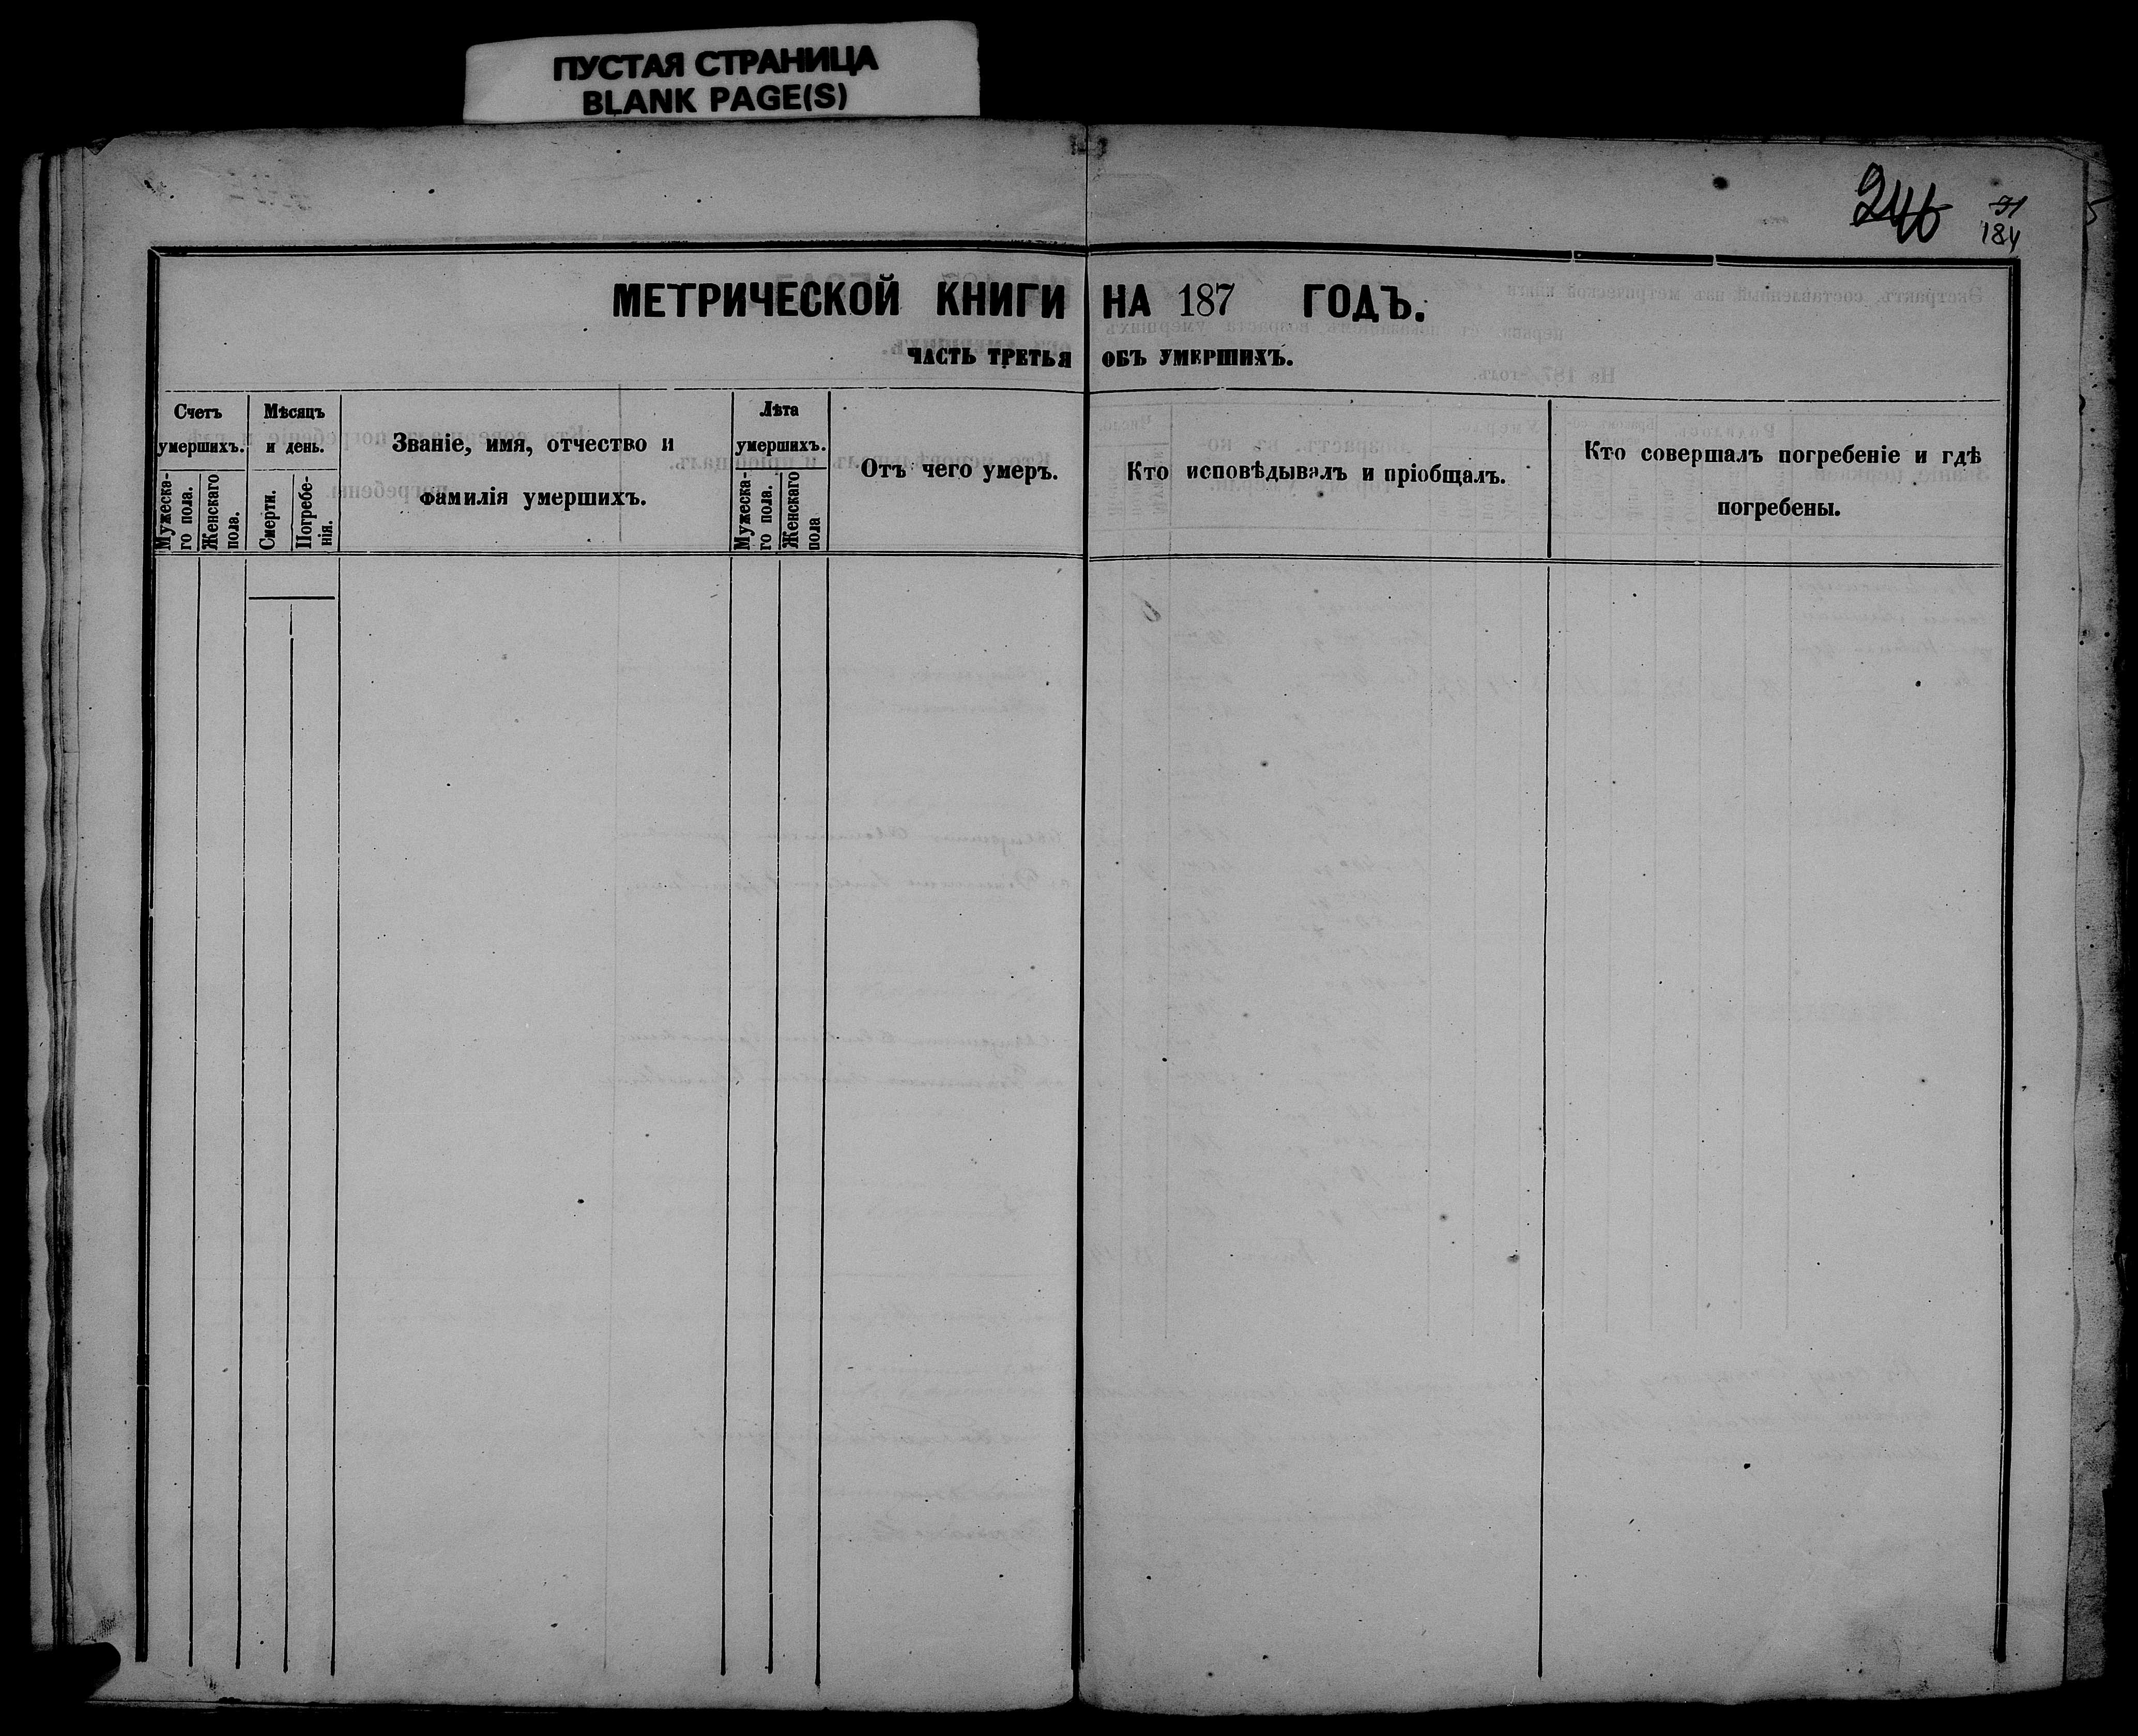 ПУСТАЯ СТРАНИЦА
BLANK PAGE(S)
246
91
184
МЕТРИЧЕСКОЙ КНИГИ НА 187 ГОДЪ.
ЧАСТЬ ТРЕТЬЯ ОБЪ УМЕРШИХЪ.
Счетъ
умершихъ.
Мужеска-
го пола.
Женскаго
пола.
Мѣсяцъ
и день.
Смерти.
Погребе-
нія.
Званіе, имя, отчество и
фамилія умершихъ.
Лѣта
умершихъ.
Мужеска-
го пола.
Женскаго
пола
Отъ чего умеръ.
Кто исповѣдывалъ и пріобщалъ.
Кто совершалъ погребеніе и гдѣ
погребены.